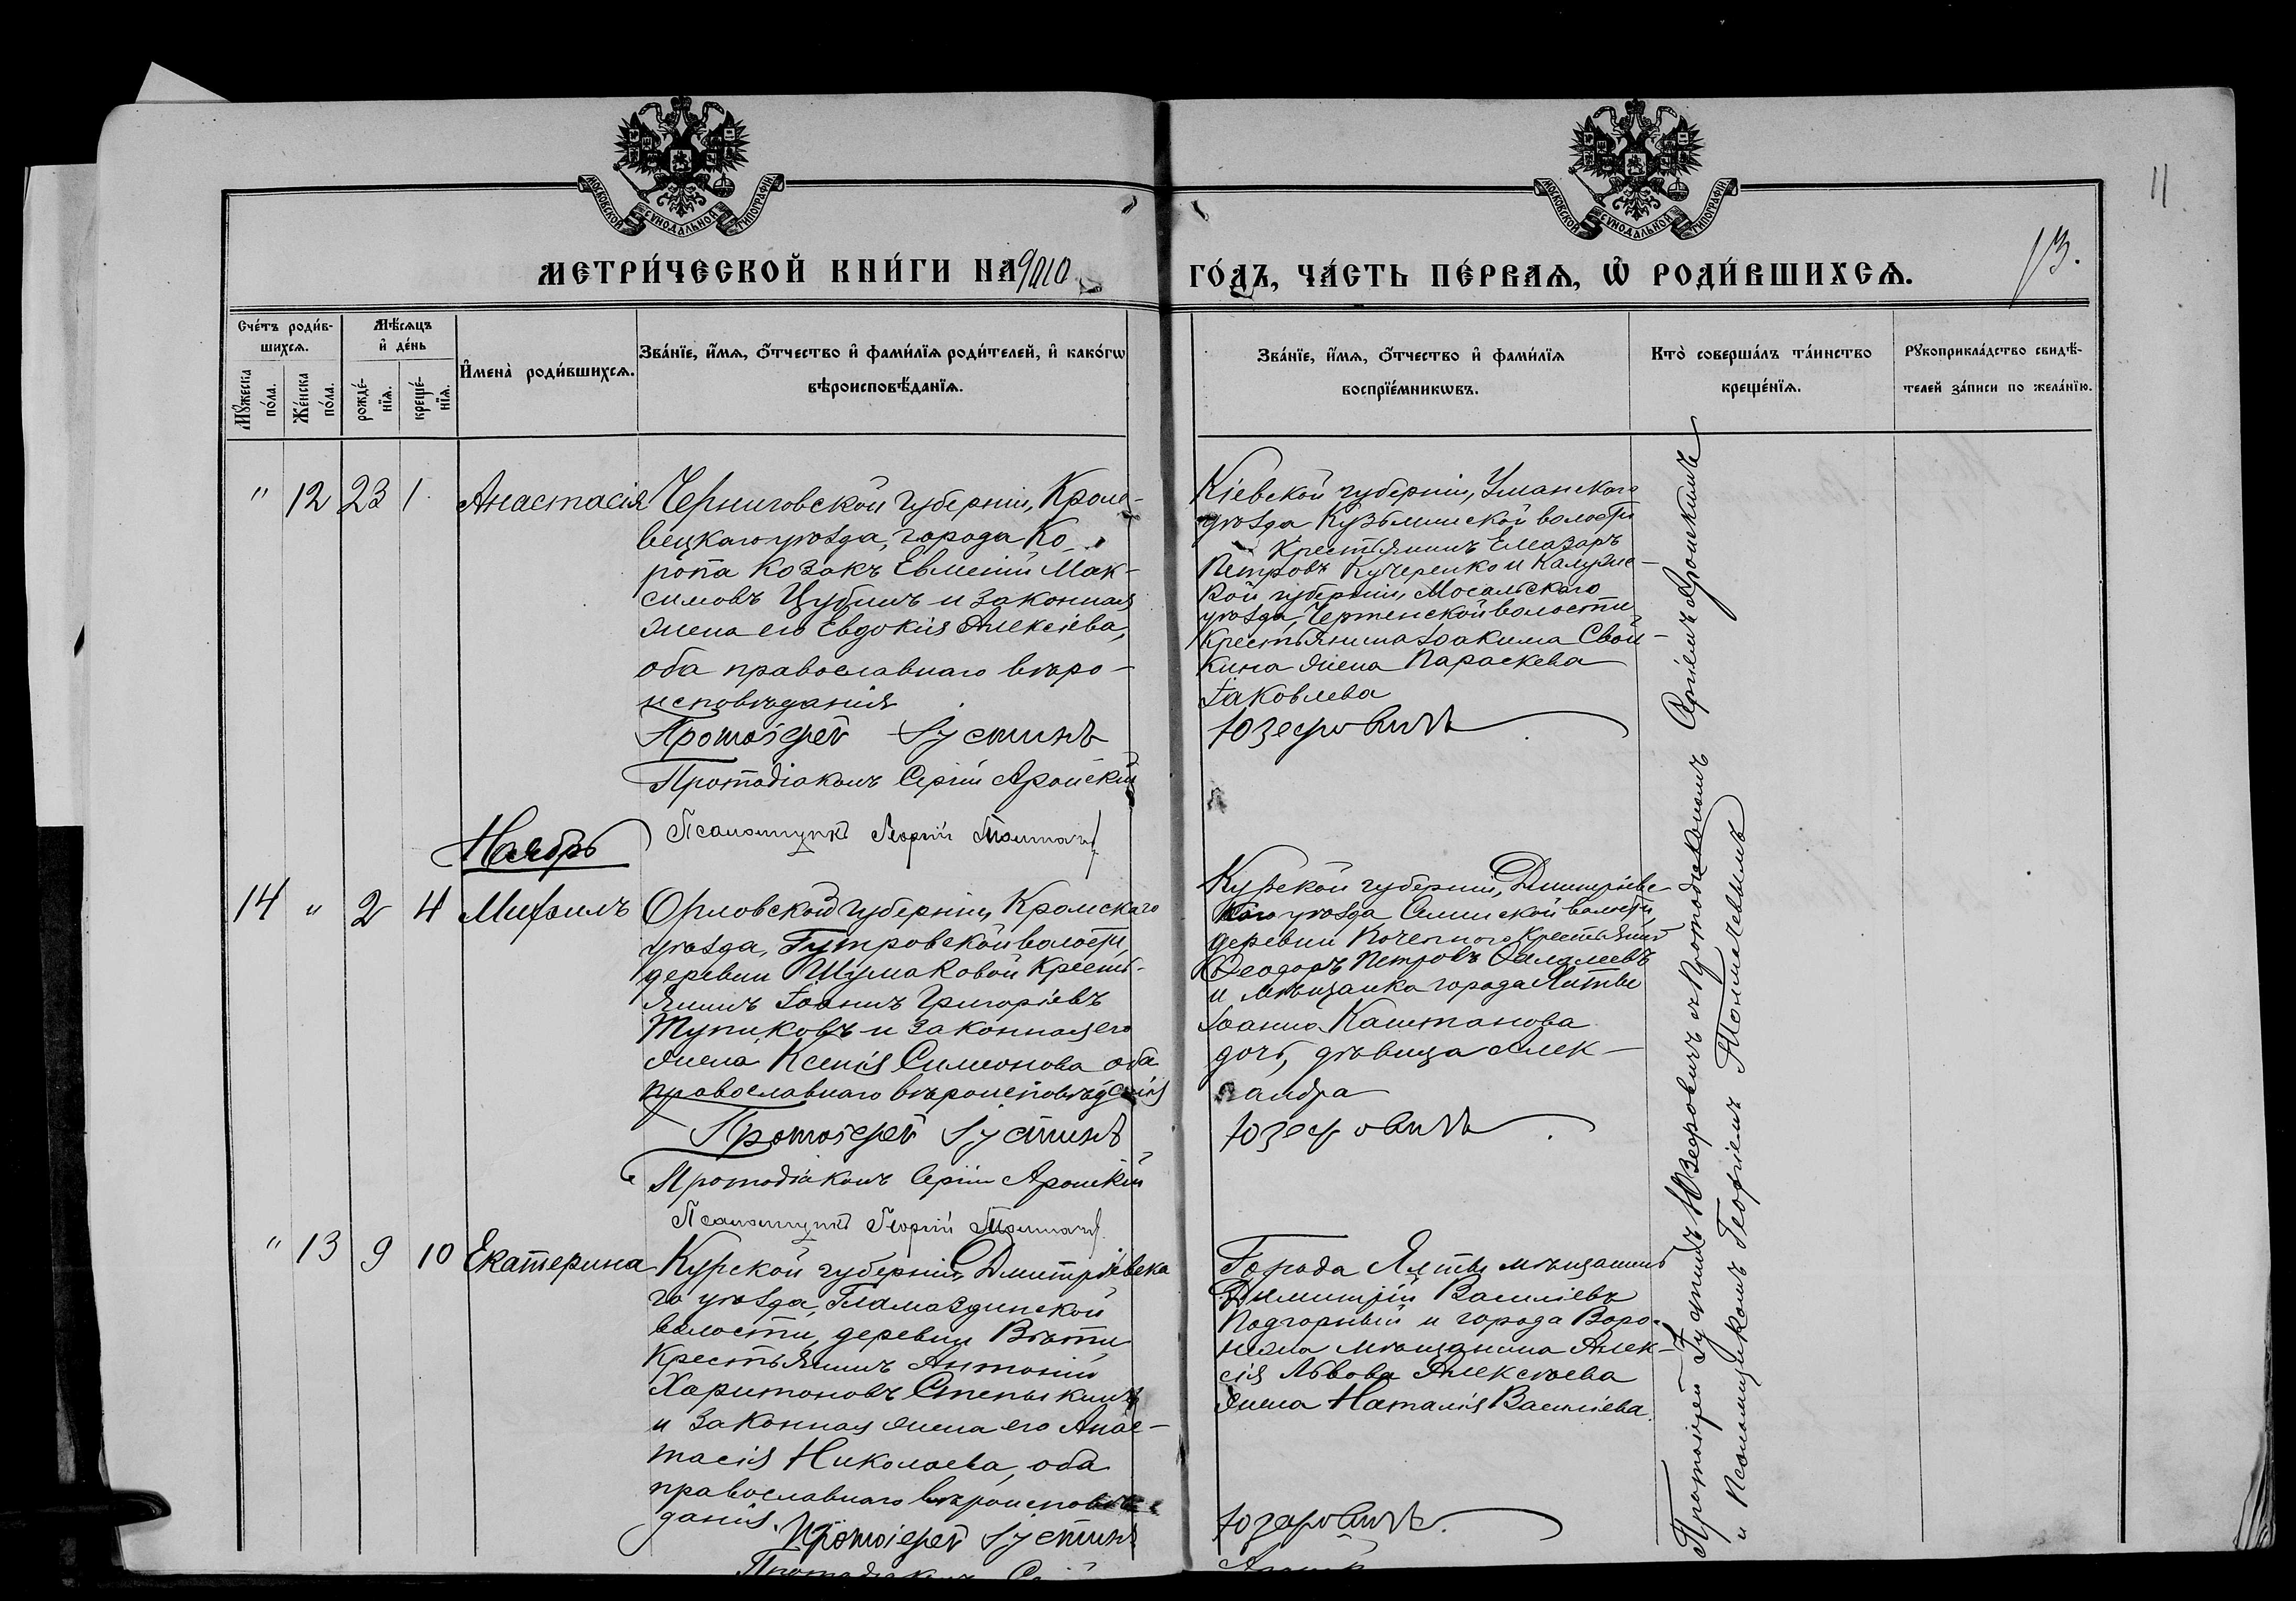 МОСКОВСКОЙ СѴНОДАЛЬНОЙ ТИПОГРАФІИ
МОСКОВСКОЙ СѴНОДАЛЬНОЙ ТИПОГРАФІИ
11
13.
МЕТРИ́ЧЕСКОЙ КНИ́ГИ НА 1910
ГО́ДЪ, ЧА́СТЬ ПЕ́РВАѦ, Ѡ҆ РОДИ́ВШИХСѦ.
Сче́тъ роди́в-
шихсѧ.
Мѣ́сѧцъ
и҆ де́нь
Мꙋ́жеска
по́ла.
Же́нска
по́ла.
рожде́-
нїѧ.
креще́-
нїѧ.
И҆мена̀ роди́вшихсѧ.
Зва́нїе, и҆́мѧ, ѻ҆́тчество и҆ фами́лїѧ роди́телей, и҆ како́гѡ
вѣроисповѣ́данїѧ.
Зва́нїе, и҆́мѧ, ѻ҆́тчество и҆ фами́лїѧ
воспрїе́мникѡвъ.
Кто̀ соверша́лъ та́инство
креще́нїѧ.
Рꙋкоприкла́дство свидѣ́-
телей за́писи по жела́нїю.
" 12 23 1 Анастасія
Черниговской губерніи, Кроле-
вецкаго уѣзда, города Ко-
ропа Козакъ Евменій Мак-
симовъ и законная
жена его Евдокія Алексіева,
оба православнаго вѣро-
исповѣданія
Протоіерей Іустинъ
Протодіаконъ Сергій Аронскій
Псаломщикъ Георгій Толмачевъ
Кіевской губерніи, Уманскаго
уѣзда Кузьминской волости
Крестьянинъ Елеазаръ
Петровъ Кучеренко и Калужс-
кой губерніи, Мосальскаго
уѣзда, Чертенской волости
Крестьянина Іоакима Свой-
кина жена Параскева
Іаковлева
Юзефовичъ
Ноябрь
14 " 2 4 Михаилъ
Орловской губерніи, Кромскаго
уѣзда, Гутровской волости,
деревни Шумаковой Кресть-
янинъ Іоаннъ Григоріевъ
Тупиковъ и законная его
жена Ксенія Симеонова оба
православнаго вѣроисповѣданія
Протоіерей Іустинъ
Протодіаконъ Сергій Аронскій
Псаломщикъ Георгій Толмачевъ
Курской губерніи, Дмитріевс-
каго уѣзда волости,
деревни Крестьянинъ
Ѳеодоръ Петровъ
и мѣщанка города Ялты
Іоанна Каштанова
дочь, дѣвица Алек-
сандра
Юзефовичъ
" 13 9 10 Екатерина
Курской губерніи, Дмитріевска
го уѣзда, Гламаздинской
волости, деревни Вѣти
Крестьянинъ Антоній
Харитоновъ Степыкинъ
и законная жена его Анас-
тасія Николаева, оба
православнаго вѣроисповѣ-
данія.
Протоіерей Іустинъ
Протодіаконъ
Города Ялты мѣщанинъ
Димитрій Василіевъ
Подгорный и города Воро-
нежа мѣщанина Алек-
сія Львова Алексѣева
жена Наталія Василіева.
Юзефовичъ.
Протоіерей Іустинъ Юзефовичъ съ Протодіакономъ Сергіемъ Аронскимъ
и Псаломщикомъ Георгіемъ Толмачевымъ